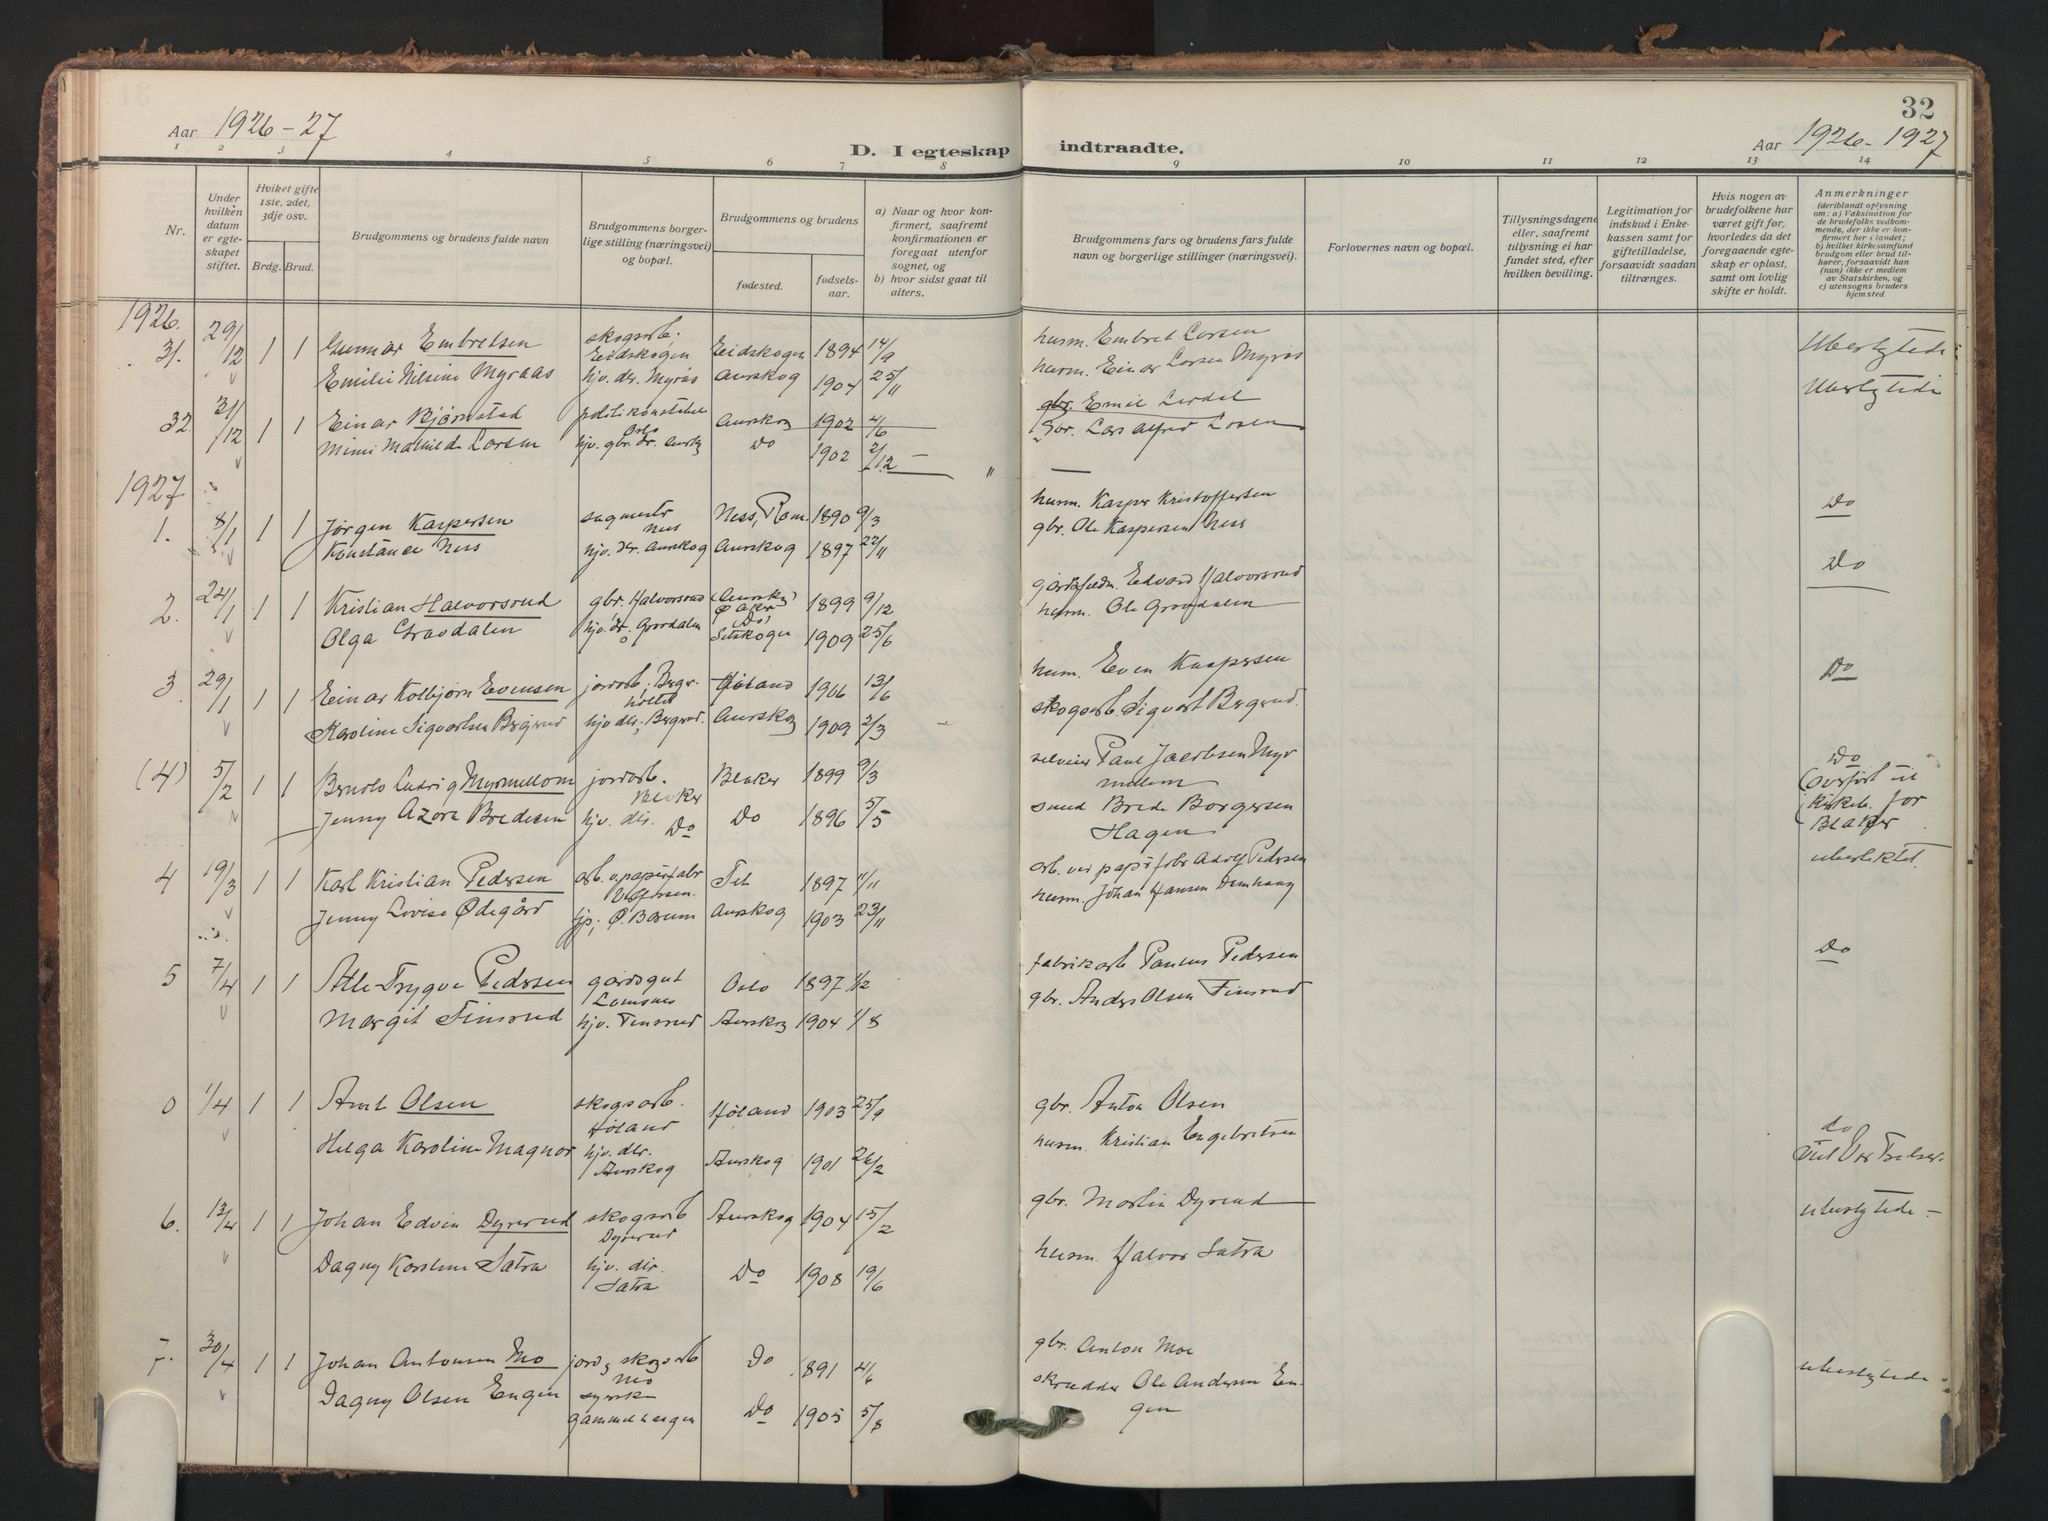 Aar 1926-27
D. I egteskap indtraadte.
32
Aar 1926-1927
1 2 3 4 5 6 7 8 9 10 11 12 13 14
Nr.
Under hvilken datum er egteskapet stiftet.
Hviket gifte 1ste, 2det, 3dje osv.
Brdg. Brud.
Brudgommens og brudens fulde navn
Brudgommens borgerlige stilling (næringsvei) og bopæl.
Brudgommens og brudens
fødested. fødselsaar.
a) Naar og hvor konfirmert, saafremt konfirmationen er foregaat utenfor sognet, og
b) hvor sidst gaat til alters.
Brudgommens fars og brudens fars fulde navn og borgerlige stillinger (næringsvei).
Forlovernes navn og bopæl.
Tillysningsdagene eller, saafremt tillysning ei har fundet sted, efter hvilken bevilling.
Legitimation for indskud i Enkekassen samt for giftetilladelse, forsaavidt saadan tiltrænges.
Hvis nogen av brudefolkene har været gift før, hvorledes da det foregaaende egteskap er opløst, samt om lovlig skifte er holdt.
Anmerkninger (deriblandt oplysning om: a) Vaksination for de brudefolks vedkommende, der ikke er konfirmert her i landet; b) hvilket kirkesamfund brudgom eller brud tilhører, forsaavidt han (hun) ikke er medlem av Statskirken, og c) utensogns bruders hjemsted
1926.
31. 29/12 1 1 Gunnar Embretsen skogsarb. Eidskogen Eidskogen 1894 14/9 husm. Embret Larsen Ubeslegtede
Emilie Nilsine Myraas hjv. dtr. Myrås Aurskog 1904 25/11 husm. Einar Larsen Myrås
32 31/12 1 1 Einar Bjørnstad politikonstabel Oslo Aurskog 1902 4/6 gbr. Emil Lerdal Ubeslegtede
Mimi Mathilde Larsen hjv. gbr. dr. Aurskg Do 1902 2/12 gbr. Lars Alfred Larsen
1927
1. 8/1 1 1 Jørgen Kaspersen sagmestr Ness Ness, Rom. 1890 9/3 husm. Kasper Kristoffersen Do
Konstanse Ness hjv. dtr. Aurskog Aurskog 1897 22/11 gbr. Ole Kaspersen Ness
2. 24/1 1 1 Kristian Halvorsrud gbr. Halvorsrud (Aurskog) 1899 9/12 Edvard Halvorsrud Do
Olga Gravdalen hjv. dr. Gravdalen Setskogen 1909 25/6 husm. Ole Gravdalen
3 29/1 1 1 Einar Kolbjørn Evensen jordarb. Høland 1906 13/6 husm. Even Kaspersen Do
Karoline Sigvartsen Bergerud hjv dtr. Bergerud. Aurskog 1909 2/3 skogsarb. Sigvart Bergerud.
(4) 5/2 1 1 Ludvig Myrmellom jordarb. Blaker Blaker 1899 9/3 Paul Jacobsen Myrmellem Do
Jenny Azora Bredesen hjv. dtr. Do Do 1896 5/5 smed Brede Borgersen Hagen
(overført til kirkeb. for Blaker
4 19/3 1 1 Karl Kristian Pedersen arb. v. papirfabr 1897 11/11 arb. ved papirfabr Adolf Pedersen ubeslektet.
Jenny Lovise Ødegård Ø. Bærum Aurskog 1903 23/11 husm. Johan Hansen
5 7/4 1 1 Atle Trygve Pedersen gårdsgut Oslo 1897 1/2 fabrikarb Paulus Pedersen Do
Margit Finsrud hjv. Finsrud Aurskog 1904 1/8 gbr. Anders Olsen Finsrud
0 1/4 1 1 Arnt Olsen skogsarb. Høland Høland 1903 25/9 gbr. Anton Olsen do
Helga Karoline Magnor hjv. dtr. Aurskog Aurskog 1901 26/2 husm Kristian Engebretsen
6. 13/4 1 1 Johan Edvin Dyrerud skogsarb Dyrerud Aurskog 1904 15/2 gbr. Martin Dyrerud ubeslegtede -
Dagny Karoline Sætra hjv. dtr. Sætra Do 1908 19/6 husm. Halvor Sætra
7. 30/4 1 1 Johan Antonsen Mo jord og skogsarb Mo Do 1891 4/6 gbr. Anton Moe ubeslegtede
Dagny Olsen Engen syerske gammelhaugen Do 1905 5/8 skrædder Ole Andersen Engen